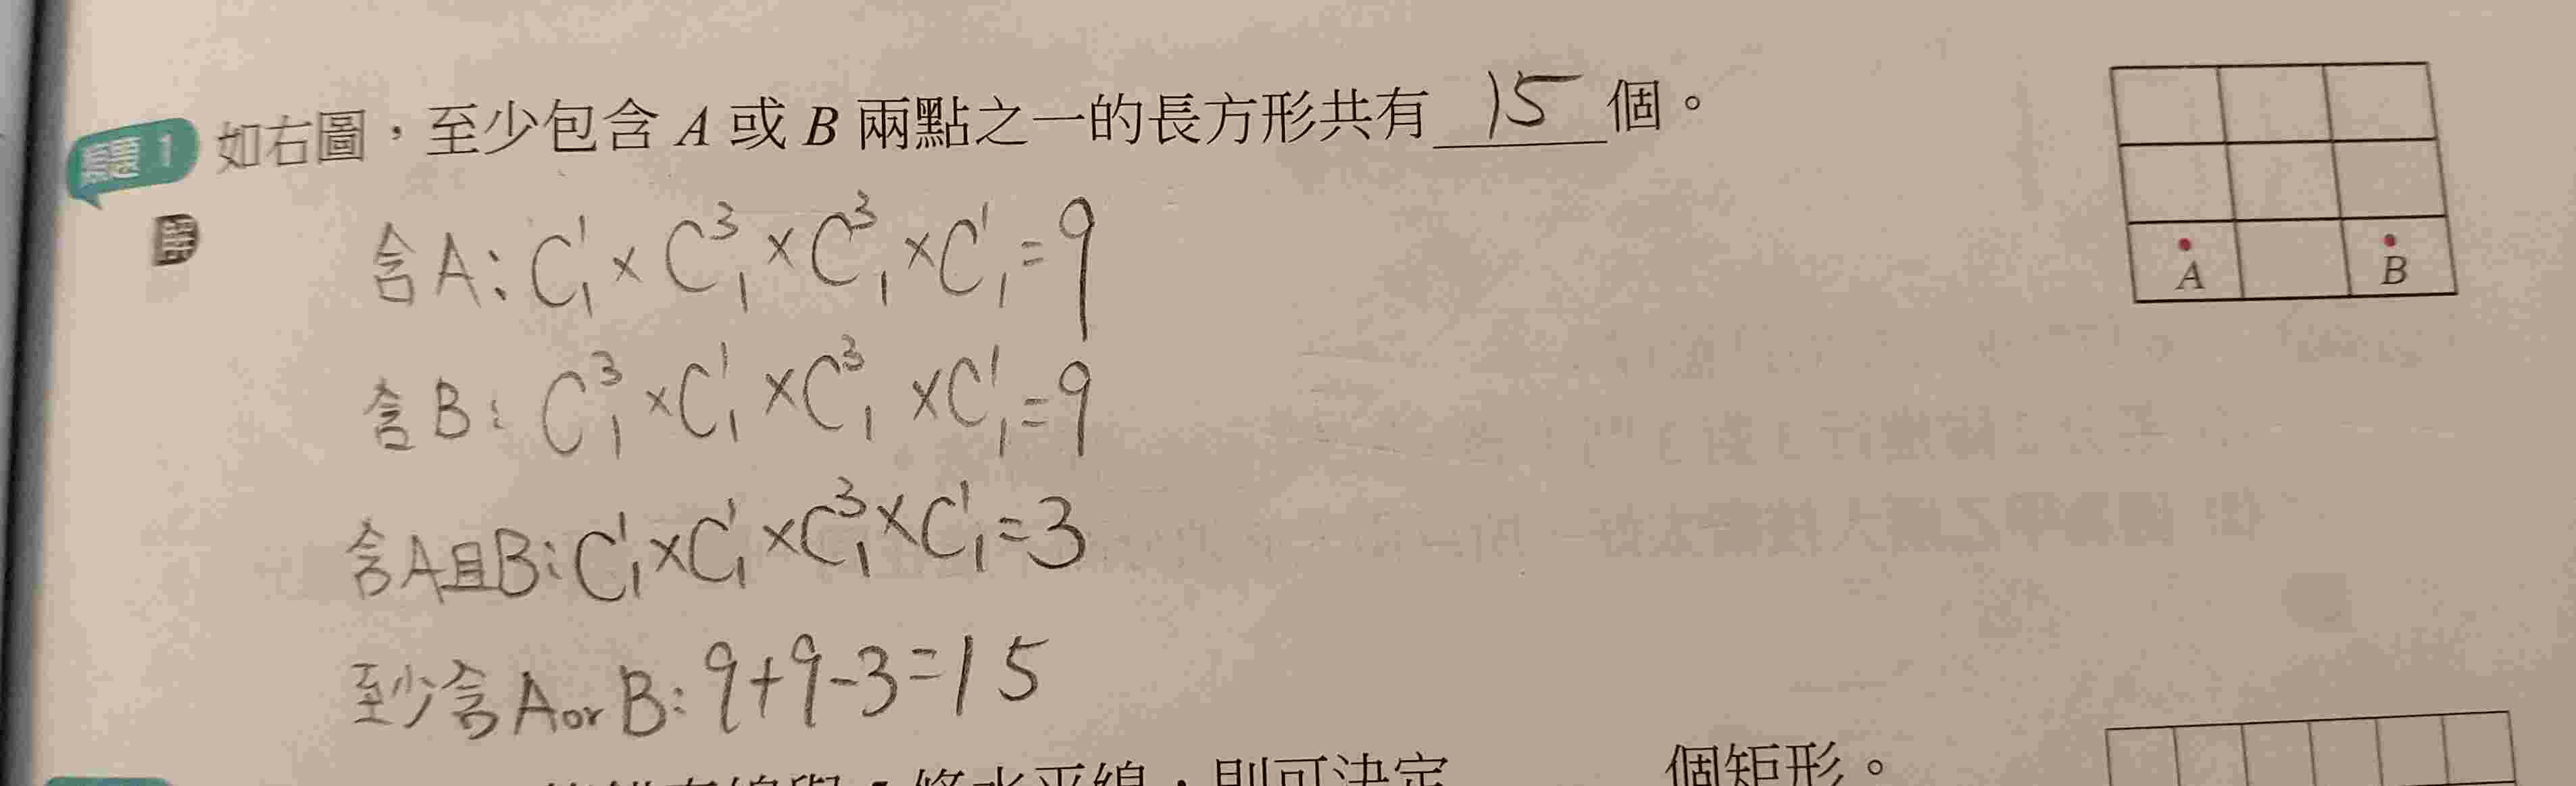 類題 1 如右圖，至少包含 A 或 B 兩點之一的長方形共有 15 個。
解
含A: C¹₁ × C³₁ × C³₁ × C¹₁ = 9
含B: C³₁ × C¹₁ × C³₁ × C¹₁ = 9
含A且B: C¹₁ × C¹₁ × C³₁ × C¹₁ = 3
至少含 A or B: 9+9-3=15
A
B
條水平線，則可決定 個矩形。